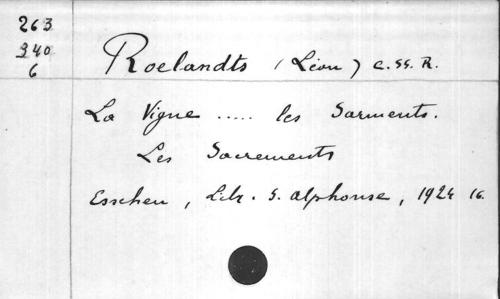 263
340
6
Roelandts (Léon) C. SS. R.
La Vigne ..... les Sarments.
Les Sacrements
Esschen, Libr. S. Alphonse, 1924 16.